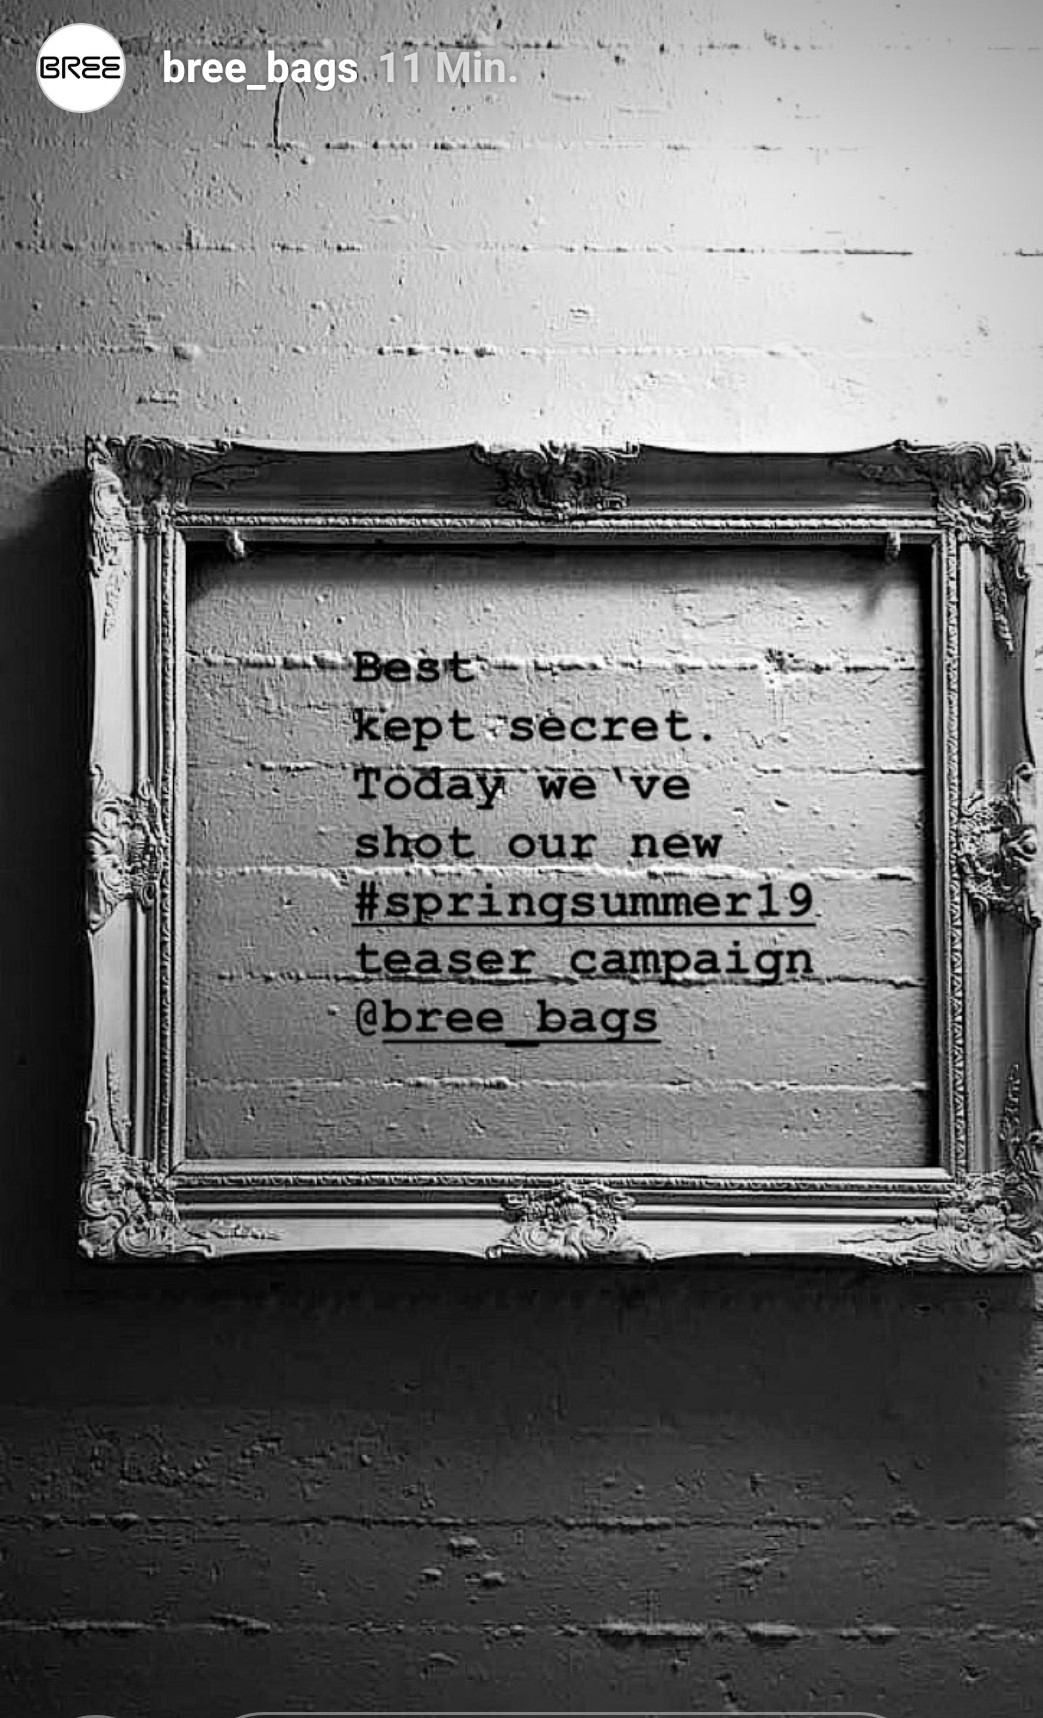 BREE
bree_bags 11 Min.
Best
kept secret.
Today we`ve
shot our new
#springsummer19
teaser campaign
@bree_bags